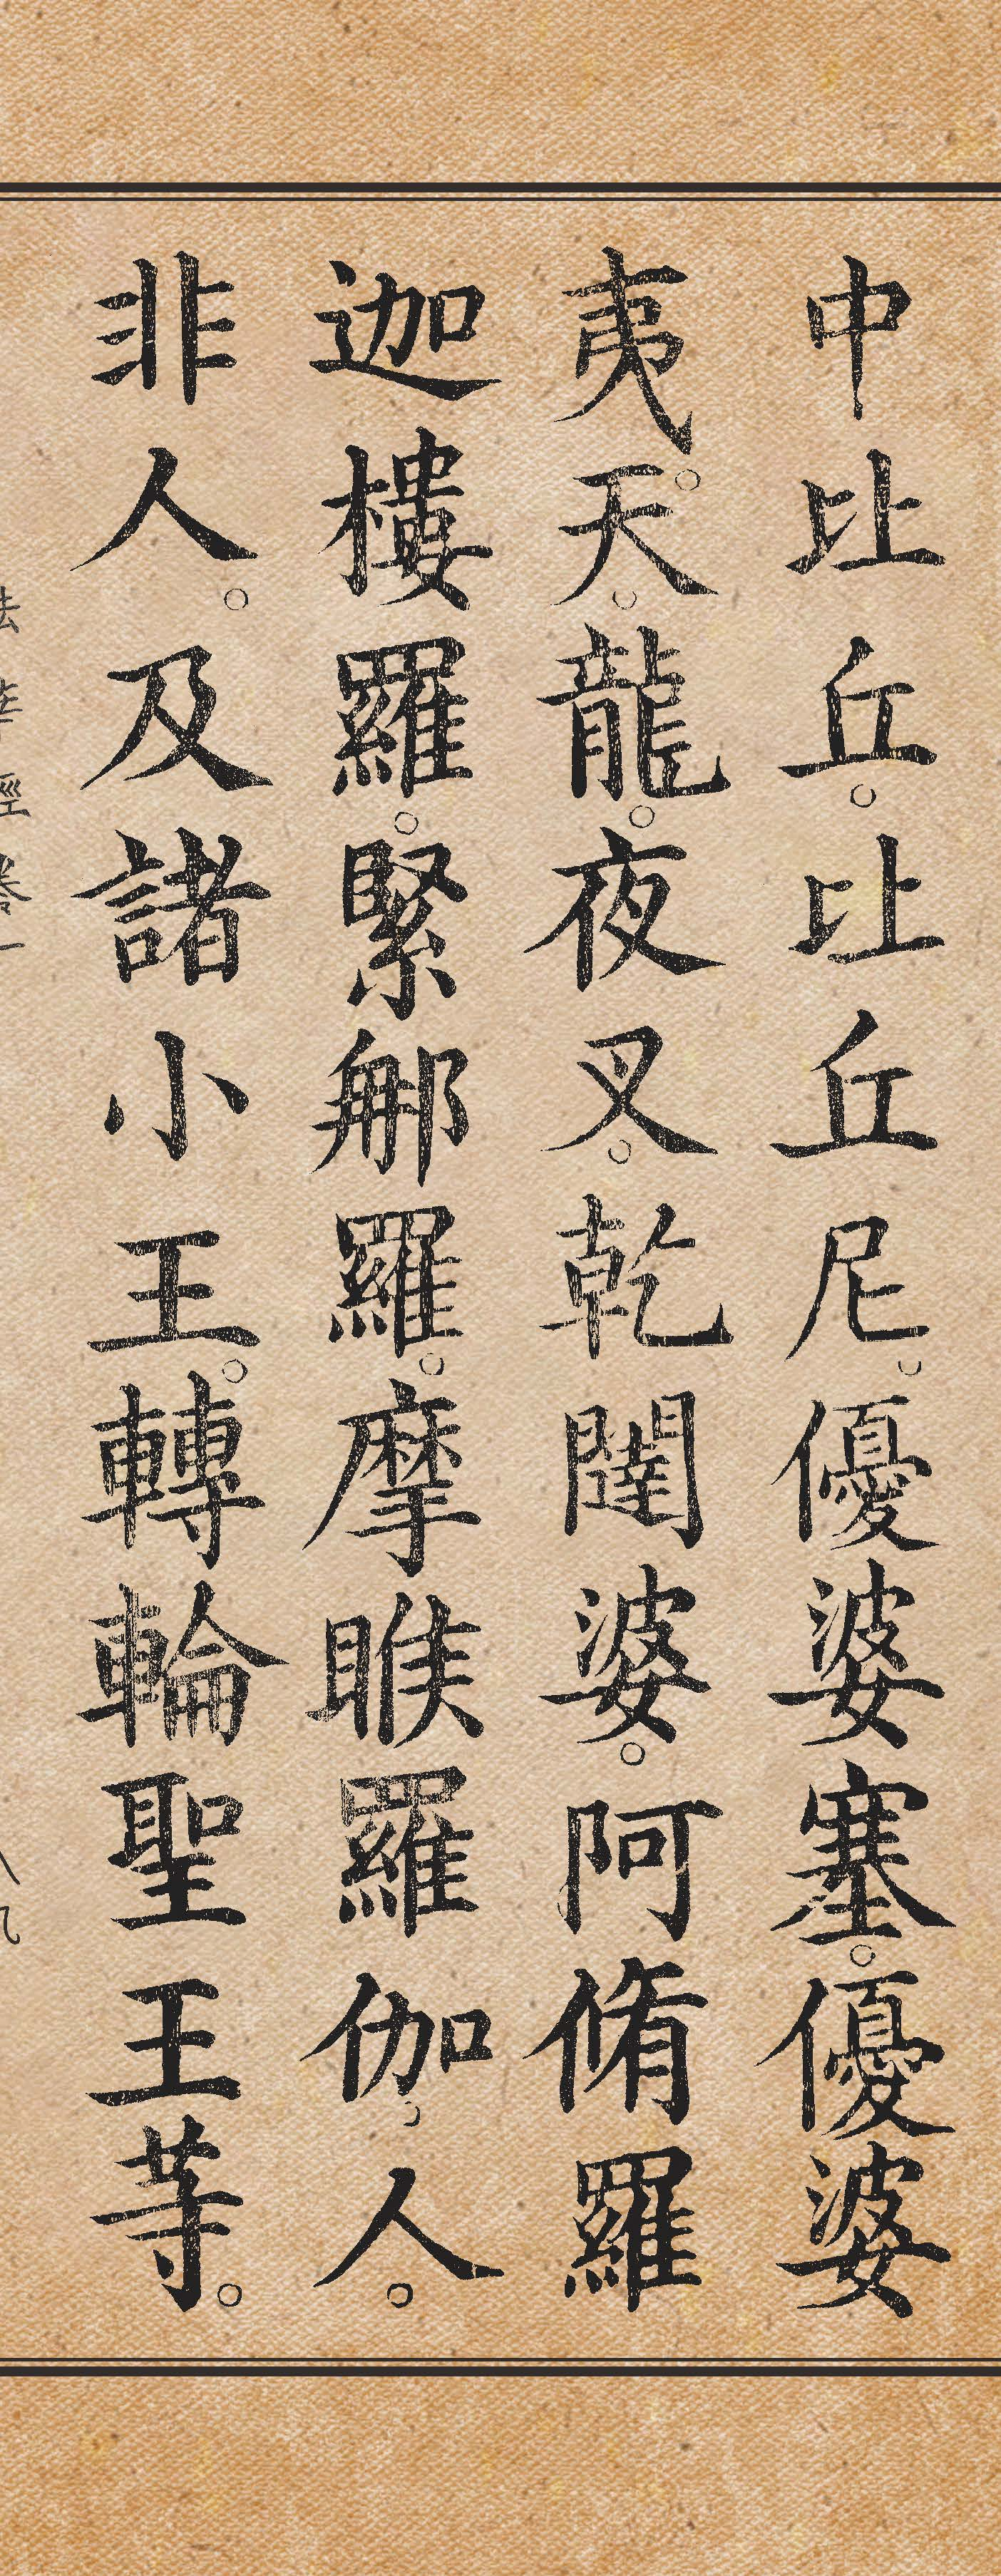 中比丘。比丘尼。優婆塞。優婆
夷。天。龍。夜叉。乾闥婆。阿脩羅
迦樓羅。緊那羅。摩睺羅伽。人。
非人。及諸小王。轉輪聖王等。